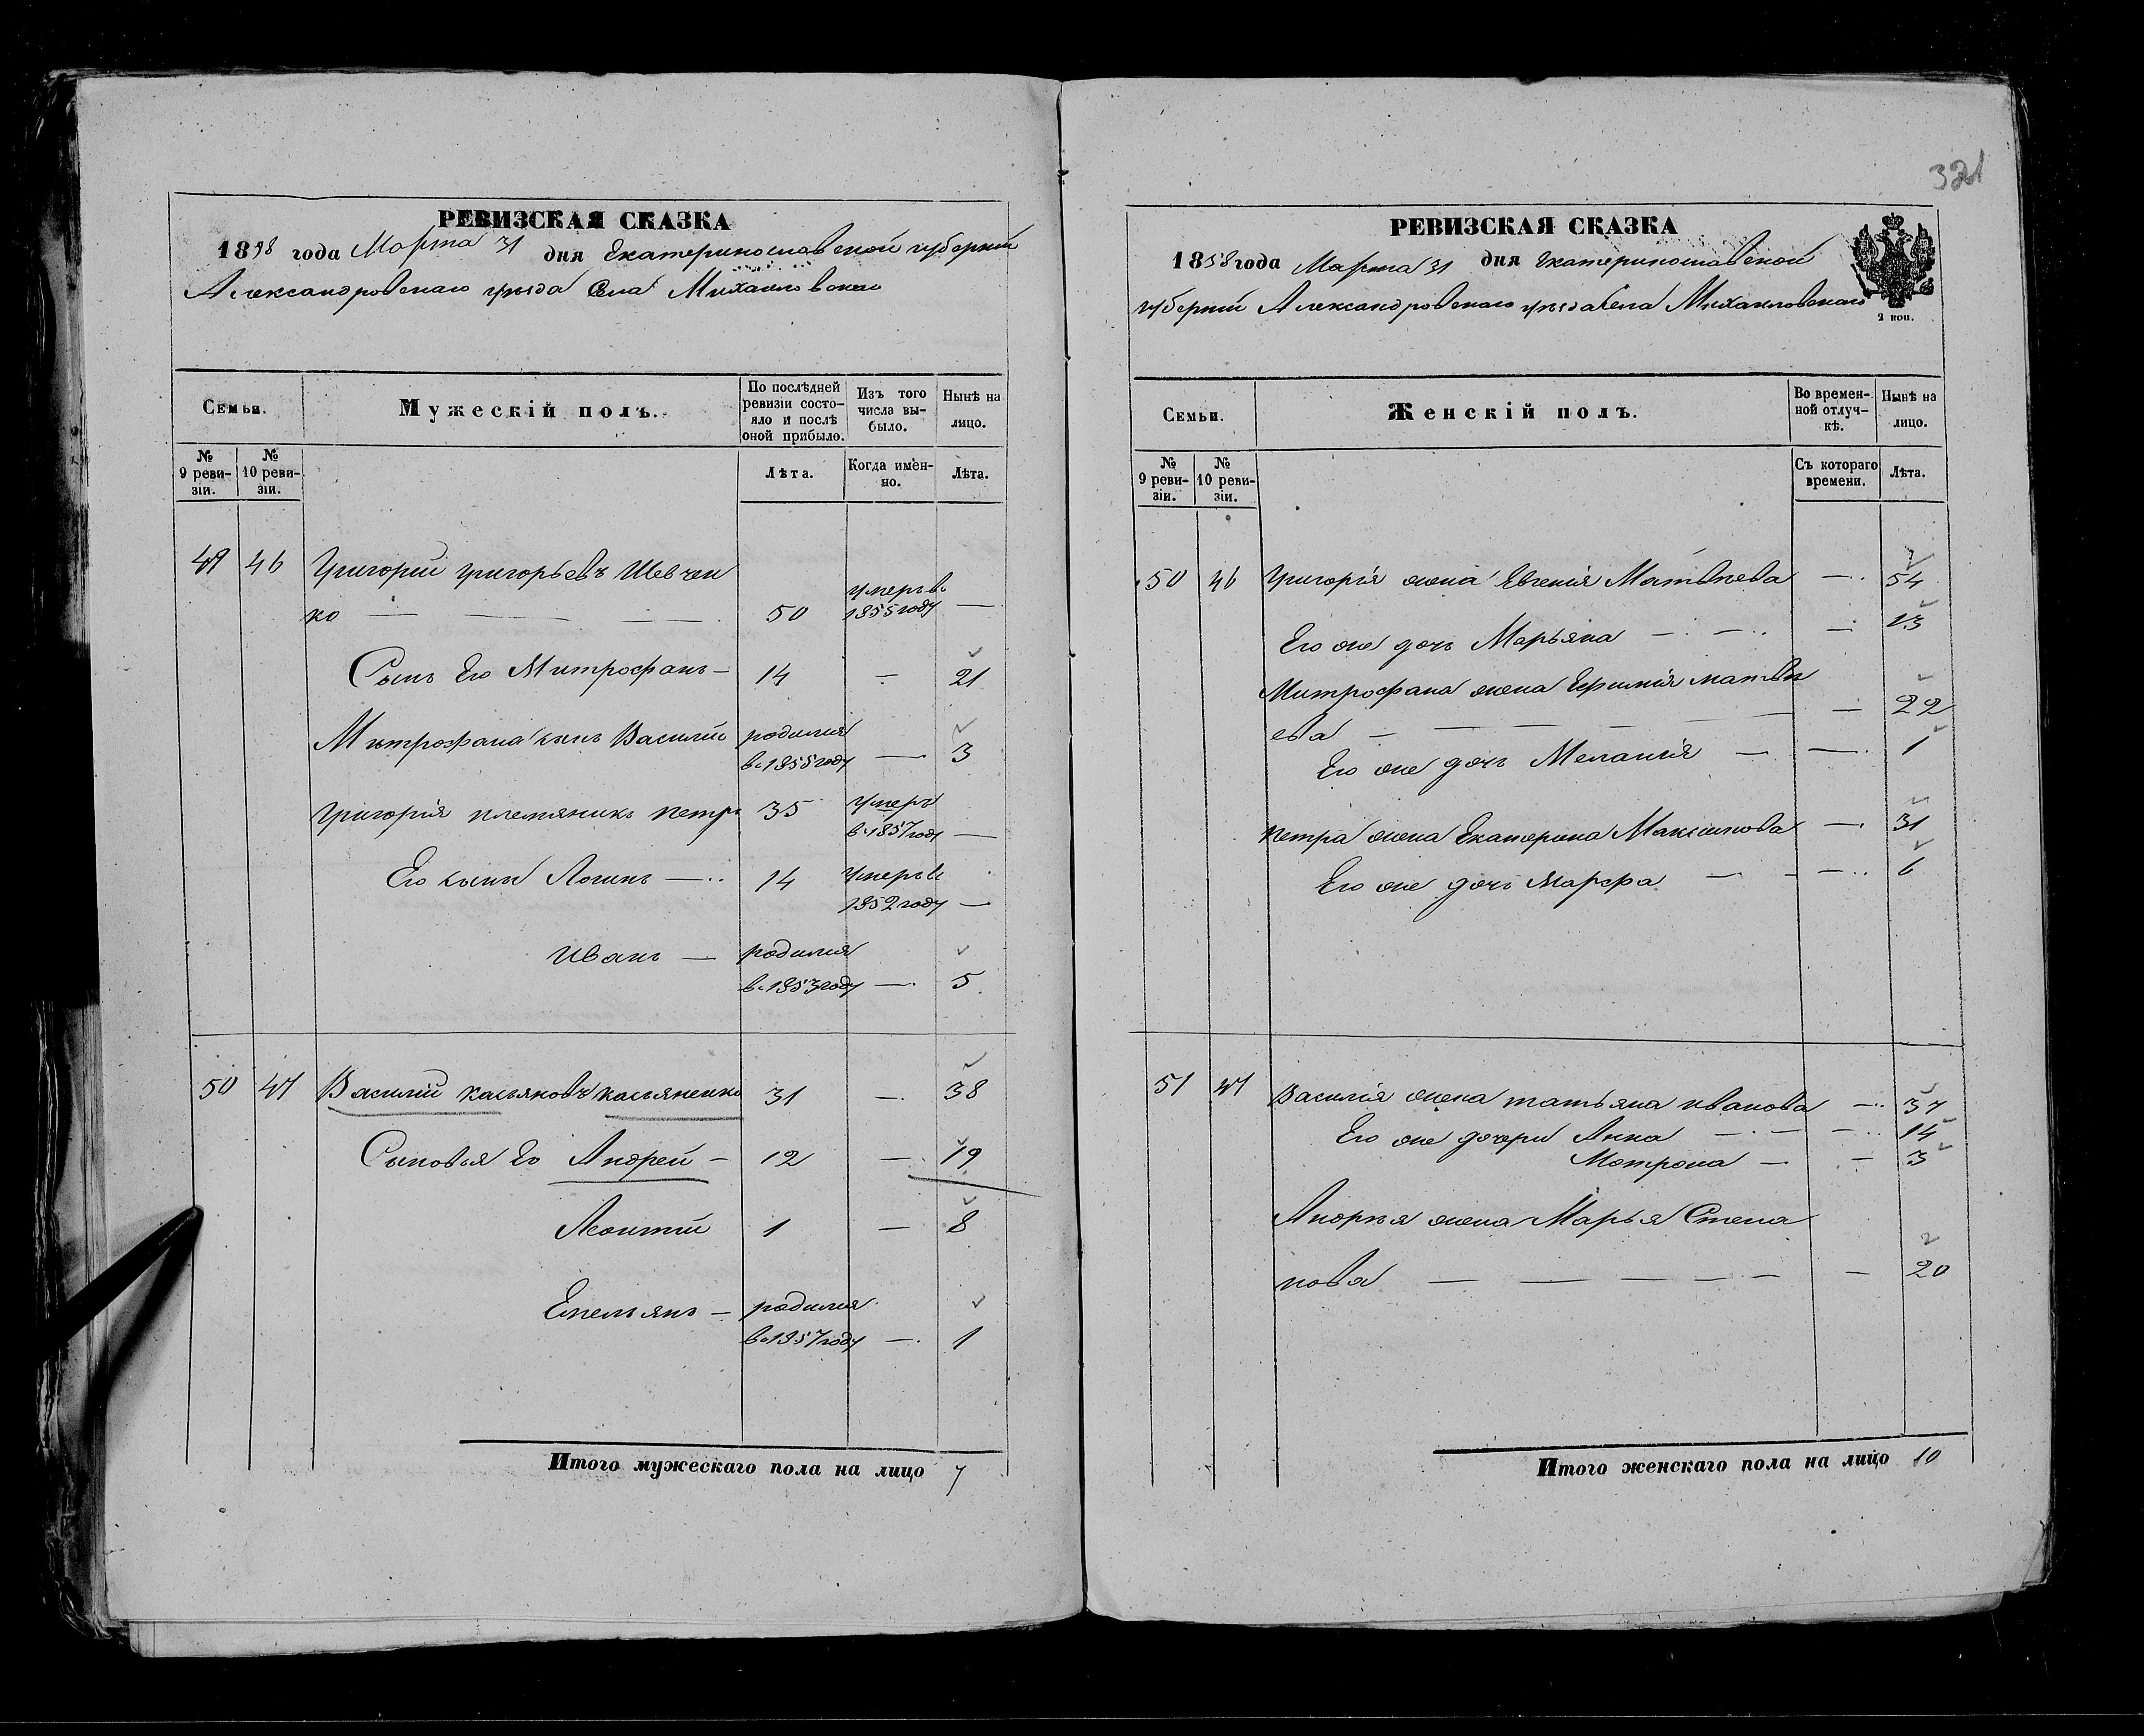 321
РЕВИЗСКАЯ СКАЗКА
1858 года Марта 31 дня Екатеринославской губернии
Александровскаго уезда Села Михайловскаго
Семьи.
Мужескій полъ.
По послѣдней ревизіи состо-
яло и послѣ оной прибыло.
Изъ того числа вы-
было.
Нынѣ на лицо.
№ 9 реви-
зіи.
№ 10 реви-
зіи.
Лѣта.
Когда имен-
но.
Лѣта.
46 Григорий Григорьевъ Шевчен
ко — — — 50 умеръ в 1855 году —
Сынъ Его Митрофанъ — 14 — 21
Митрофана сынъ Василий родился в 1855 году — 3
Григорія племяникъ петръ 35 умеръ в 1857 году —
Его сынъ Логинъ — 14 умеръ в 1852 году —
Иванъ — родился в 1853 году — 5
50 47 Василий касьяновъ касьяненко 31 — 38
Сыновья Его Андрей — 12 — 19
Леонтий 1 — 8
Емельянъ — родился в 1857 году — 1
Итого мужескаго пола на лицо 7
РЕВИЗСКАЯ СКАЗКА
1858 года Марта 31 дня Екатеринославской
губернии Александровскаго уезда Села Михайловскаго
2 коп.
Семьи.
Женскій полъ.
Во времен-
ной отлуч-
кѣ.
Нынѣ на лицо.
№ 9 реви-
зіи.
№ 10 реви-
зіи.
Съ котораго времени.
Лѣта.
50 46 Григорія жена Евгенія Матвѣева — 54
Его же дочь Марьяна — — — 13
Митрофана жена Ефимія матвѣ
ева — — — — 22
Его же дочь Меланія — — 1
петра жена Екатерина Максимова — 31
Его же дочь Марфа — — 6
51 47 Василія жена татьяна иванова — 37
Его же дочери Анна — — — 14
Мотрона — — 3
Андрея жена Марья Степа
нова — — — — — 20
Итого женскаго пола на лицо 10